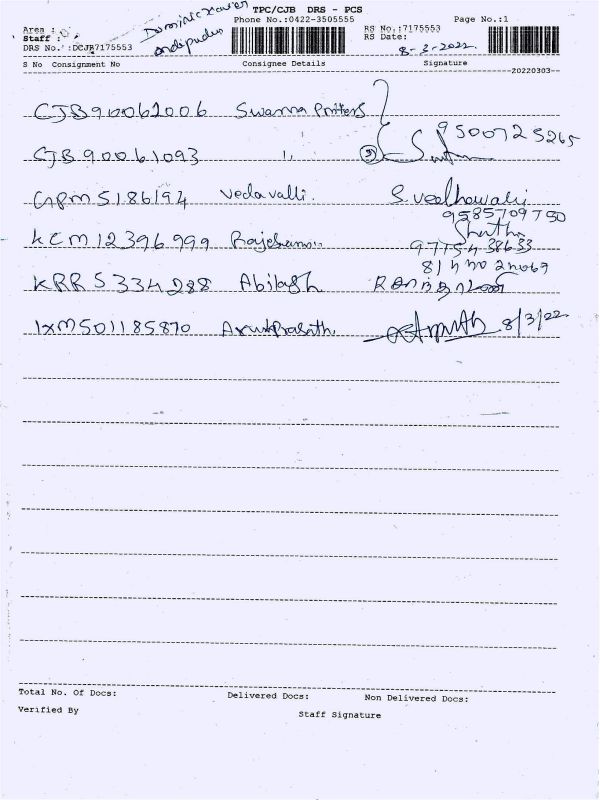 TPC/CJB DRS - PCS
Phone No.:0422-3505555
Page No.:1
Area :
Staff :
Dominic xavier
DRS No. :DCJB7175553
RS No.:7175553
RS Date: 8-3-2022
S No Consignment No Consignee Details Signature
20220303
CJB90062006 Swarna Printers
9500725265
CJB90061093 "
GPM5186194 Vedavalli.
9585709750
KCM12396999
KRR5334288 Abilash
IXM501185870 ArunPrasath. 8/3/22
Total No. Of Docs: Delivered Docs: Non Delivered Docs:
Verified By Staff Signature